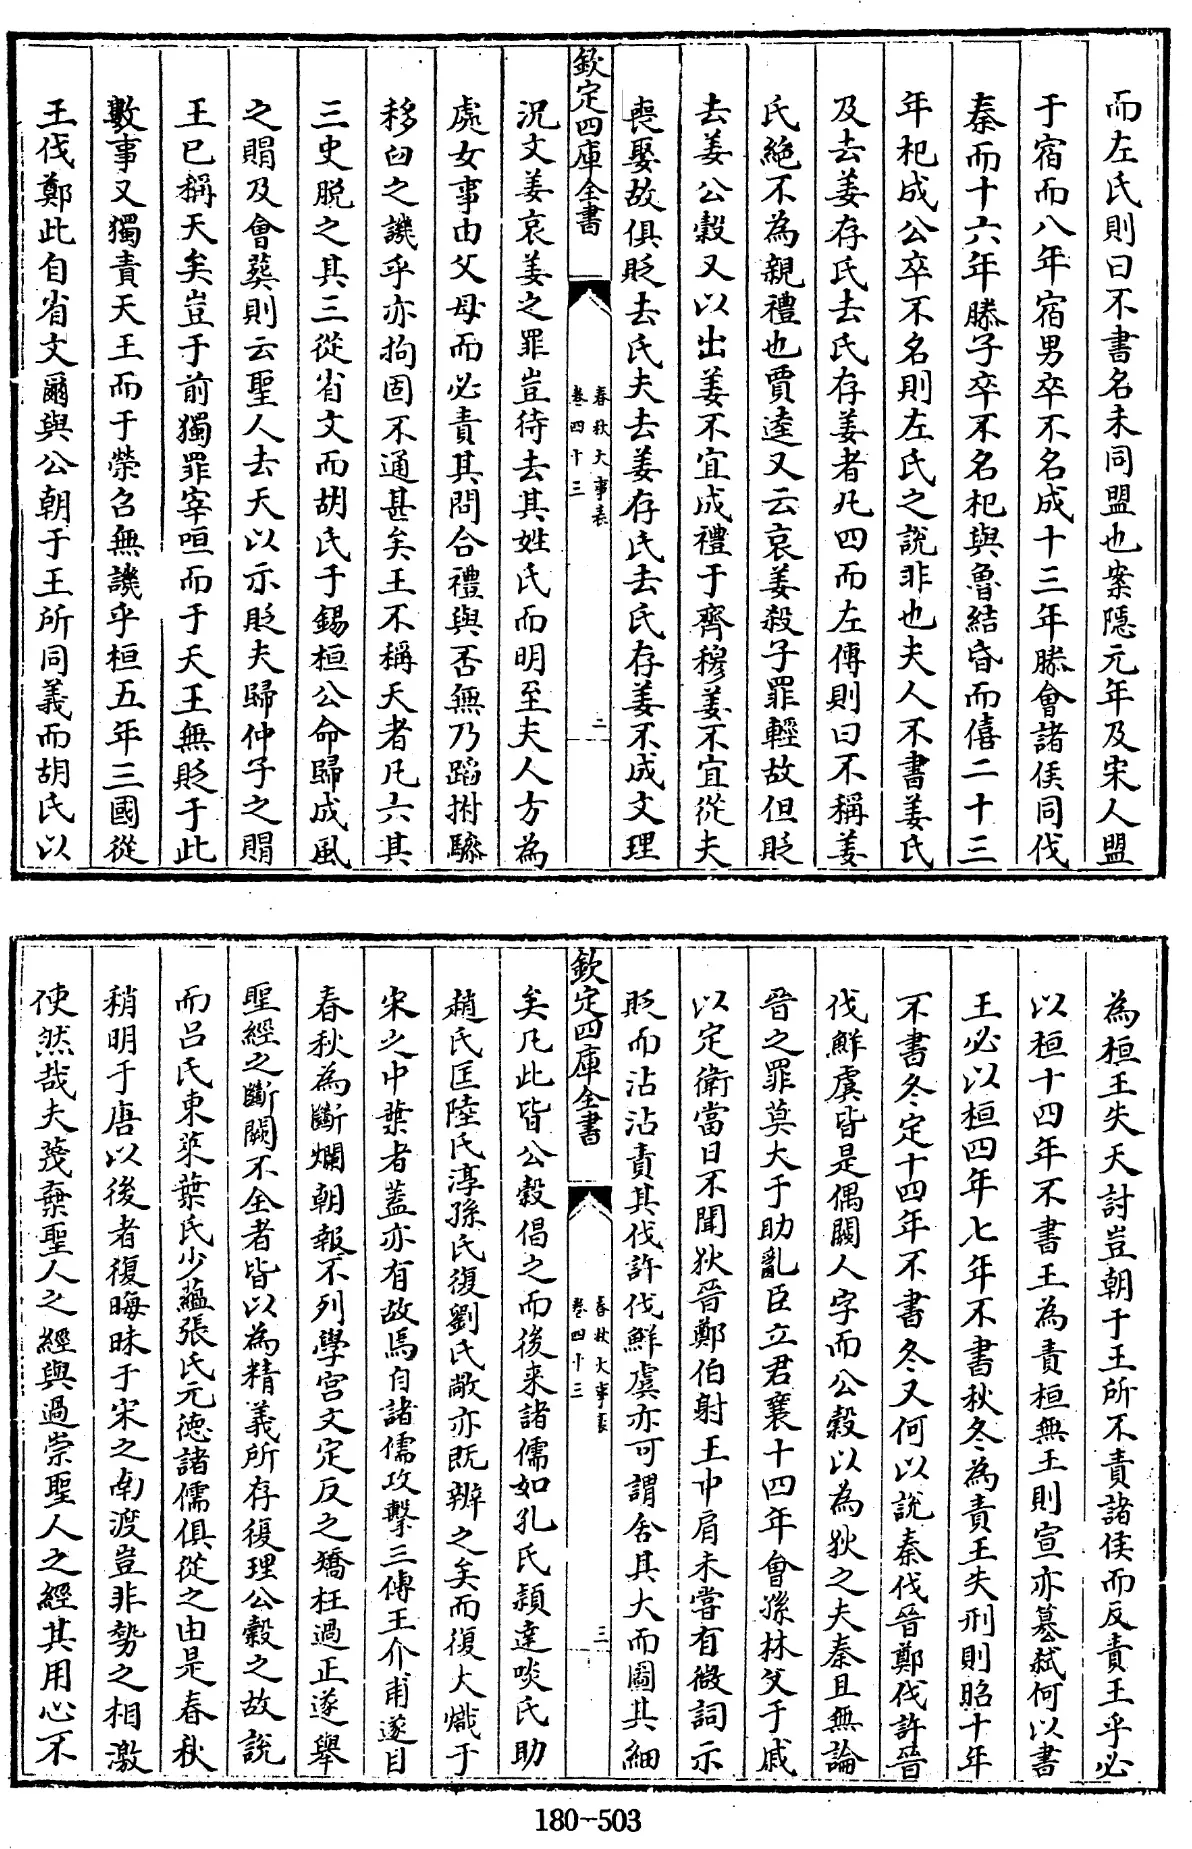 而左氏則曰不書名未同盟也案隱元年及宋人盟
于宿而八年宿男卒不名成十三年滕會諸侯同伐
秦而十六年滕子卒不名杞與魯結昏而僖二十三
年杞成公卒不名則左氏之說非也夫人不書姜氏
及去姜存氏去氏存姜者凡四而左傳則曰不稱姜
氏絶不為親禮也賈逵又云哀姜殺子罪輕故但貶
去姜公穀又以出姜不宜成禮于齊穆姜不宜從夫
喪娶故俱貶去氏夫去姜存氏去氏存姜不成文理
欽定四庫全書
春秋大事表
卷四十三
二
況文姜哀姜之罪豈待去其姓氏而明至夫人方為
處女事由父母而必責其問合禮與否無乃蹈拊驂
移臼之譏乎亦拘固不通甚矣王不稱天者凡六其
三史脱之其三從省文而胡氏于錫桓公命歸成風
之賵及會葬則云聖人去天以示貶夫歸仲子之賵
王已稱天矣豈于前獨罪宰咺而于天王無貶于此
數事又獨責天王而于榮召無譏乎桓五年三國從
王伐鄭此自省文爾與公朝于王所同義而胡氏以
為桓王失天討豈朝于王所不責諸侯而反責王乎必
以桓十四年不書王為責桓無王則宣亦簒弑何以書
王必以桓四年七年不書秋冬為責王失刑則昭十年
不書冬定十四年不書冬又何以說秦伐晉鄭伐許晉
伐鮮虞皆是偶闕人字而公穀以為狄之夫秦且無論
晉之罪莫大于助亂臣立君襄十四年會孫林父于戚
以定衛當日不聞狄晉鄭伯射王中肩未嘗有微詞示
貶而沾沾責其伐許伐鮮虞亦可謂舍其大而圖其細
欽定四庫全書
春秋大事表
卷四十三
三
矣凡此皆公穀倡之而後來諸儒如孔氏穎達啖氏助
趙氏匡陸氏淳孫氏復劉氏敞亦既辨之矣而復大熾于
宋之中葉者蓋亦有故焉自諸儒攻擊三傳王介甫遂目
春秋為斷爛朝報不列學宫文定反之矯枉過正遂舉
聖經之斷闕不全者皆以為精義所存復理公穀之故說
而吕氏東萊葉氏少蘊張氏元德諸儒俱從之由是春秋
稍明于唐以後者復晦昧于宋之南渡豈非勢之相激
使然哉夫蔑棄聖人之經與過崇聖人之經其用心不
180-503